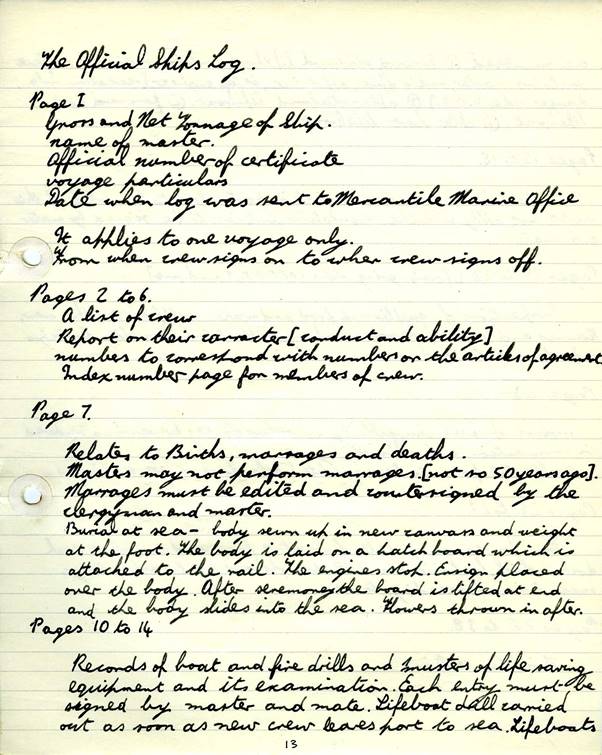 The Official Ships Log.
Page I
Gross and Net Tonnage of Ship.
name of master.
Official number of certificate
voyage particulars
Date when log was sent to Mercantile Marine Office
It applies to one voyage only.
From when crew signs on to when crew signs off.
Pages 2 to 6.
A list of crew
Report on their carracter [conduct and ability]
numbers to correspond with numbers on the articles of agreement
Index number page for members of crew.
Page 7.
Relates to Births, marrages and deaths.
Masters may not perform marrages. [not so 50 years ago].
Marrages must be edited and countersigned by the
clergyman and master.
Burial at sea - body sewn up in new canvars and weight
at the foot. The body is laid on a hatch board which is
attached to the rail. The engines stop. Ensign placed
over the body. After seremony the board is lifted at end
and the body slides into the sea. Flowers thrown in after.
Pages 10 to 14
Records of boat and fire drills and musters of life saving
equipment and its examination. Each entry must be
signed by master and mate. Lifeboat drill carried
out as soon as new crew leaves port to sea. Lifeboats
13